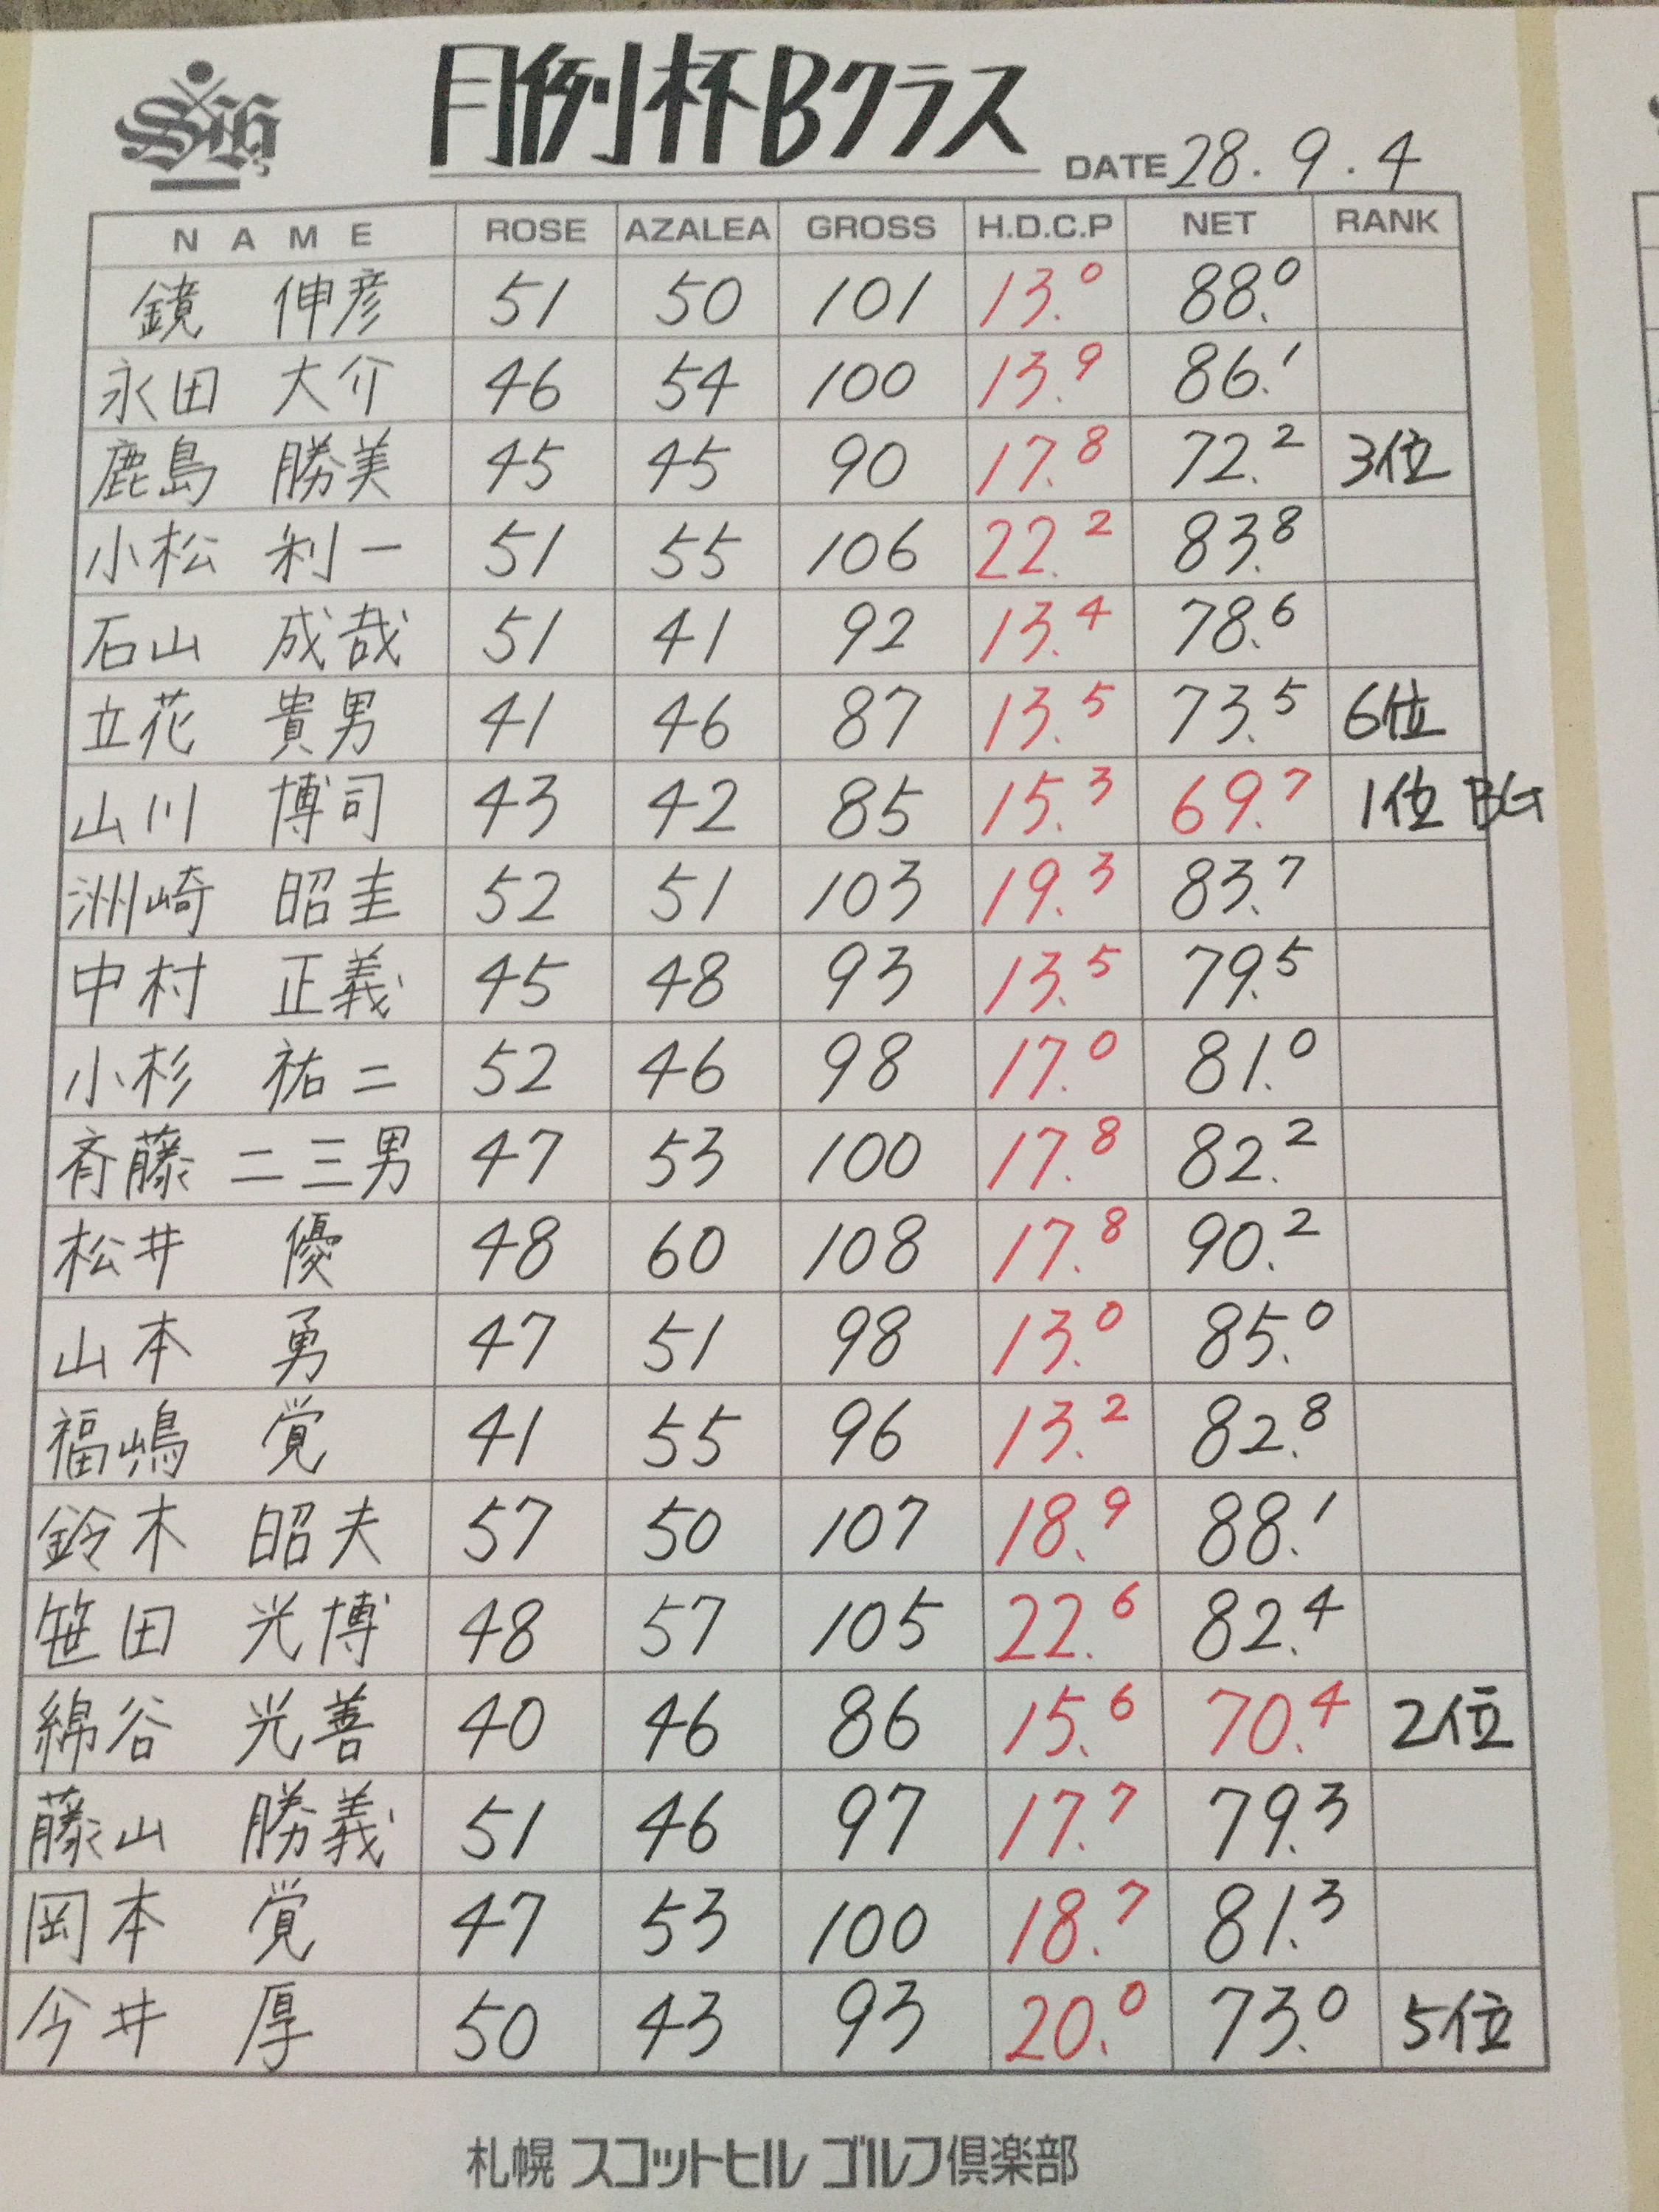 月例杯Bクラス
DATE 28.9.4
NAME ROSE AZALEA GROSS H.D.C.P NET RANK
鏡 伸彦 51 50 101 13.0 88.0
永田 大介 46 54 100 13.9 86.1
鹿島 勝美 45 45 90 17.8 72.2 3位
小松 利一 51 55 106 22.2 83.8
石山 成哉 51 41 92 13.4 78.6
立花 貴男 41 46 87 13.5 73.5 6位
山川 博司 43 42 85 15.3 69.7 1位 BG
洲崎 昭圭 52 51 103 19.3 83.7
中村 正義 45 48 93 13.5 79.5
小杉 祐二 52 46 98 17.0 81.0
斉藤 二三男 47 53 100 17.8 82.2
松井 優 48 60 108 17.8 90.2
山本 勇 47 51 98 13.0 85.0
福嶋 覚 41 55 96 13.2 82.8
鈴木 昭夫 57 50 107 18.9 88.1
笹田 光博 48 57 105 22.6 82.4
綿谷 光善 40 46 86 15.6 70.4 2位
藤山 勝義 51 46 97 17.7 79.3
岡本 覚 47 53 100 18.7 81.3
今井 厚 50 43 93 20.0 73.0 5位
札幌 スコットヒル ゴルフ倶楽部